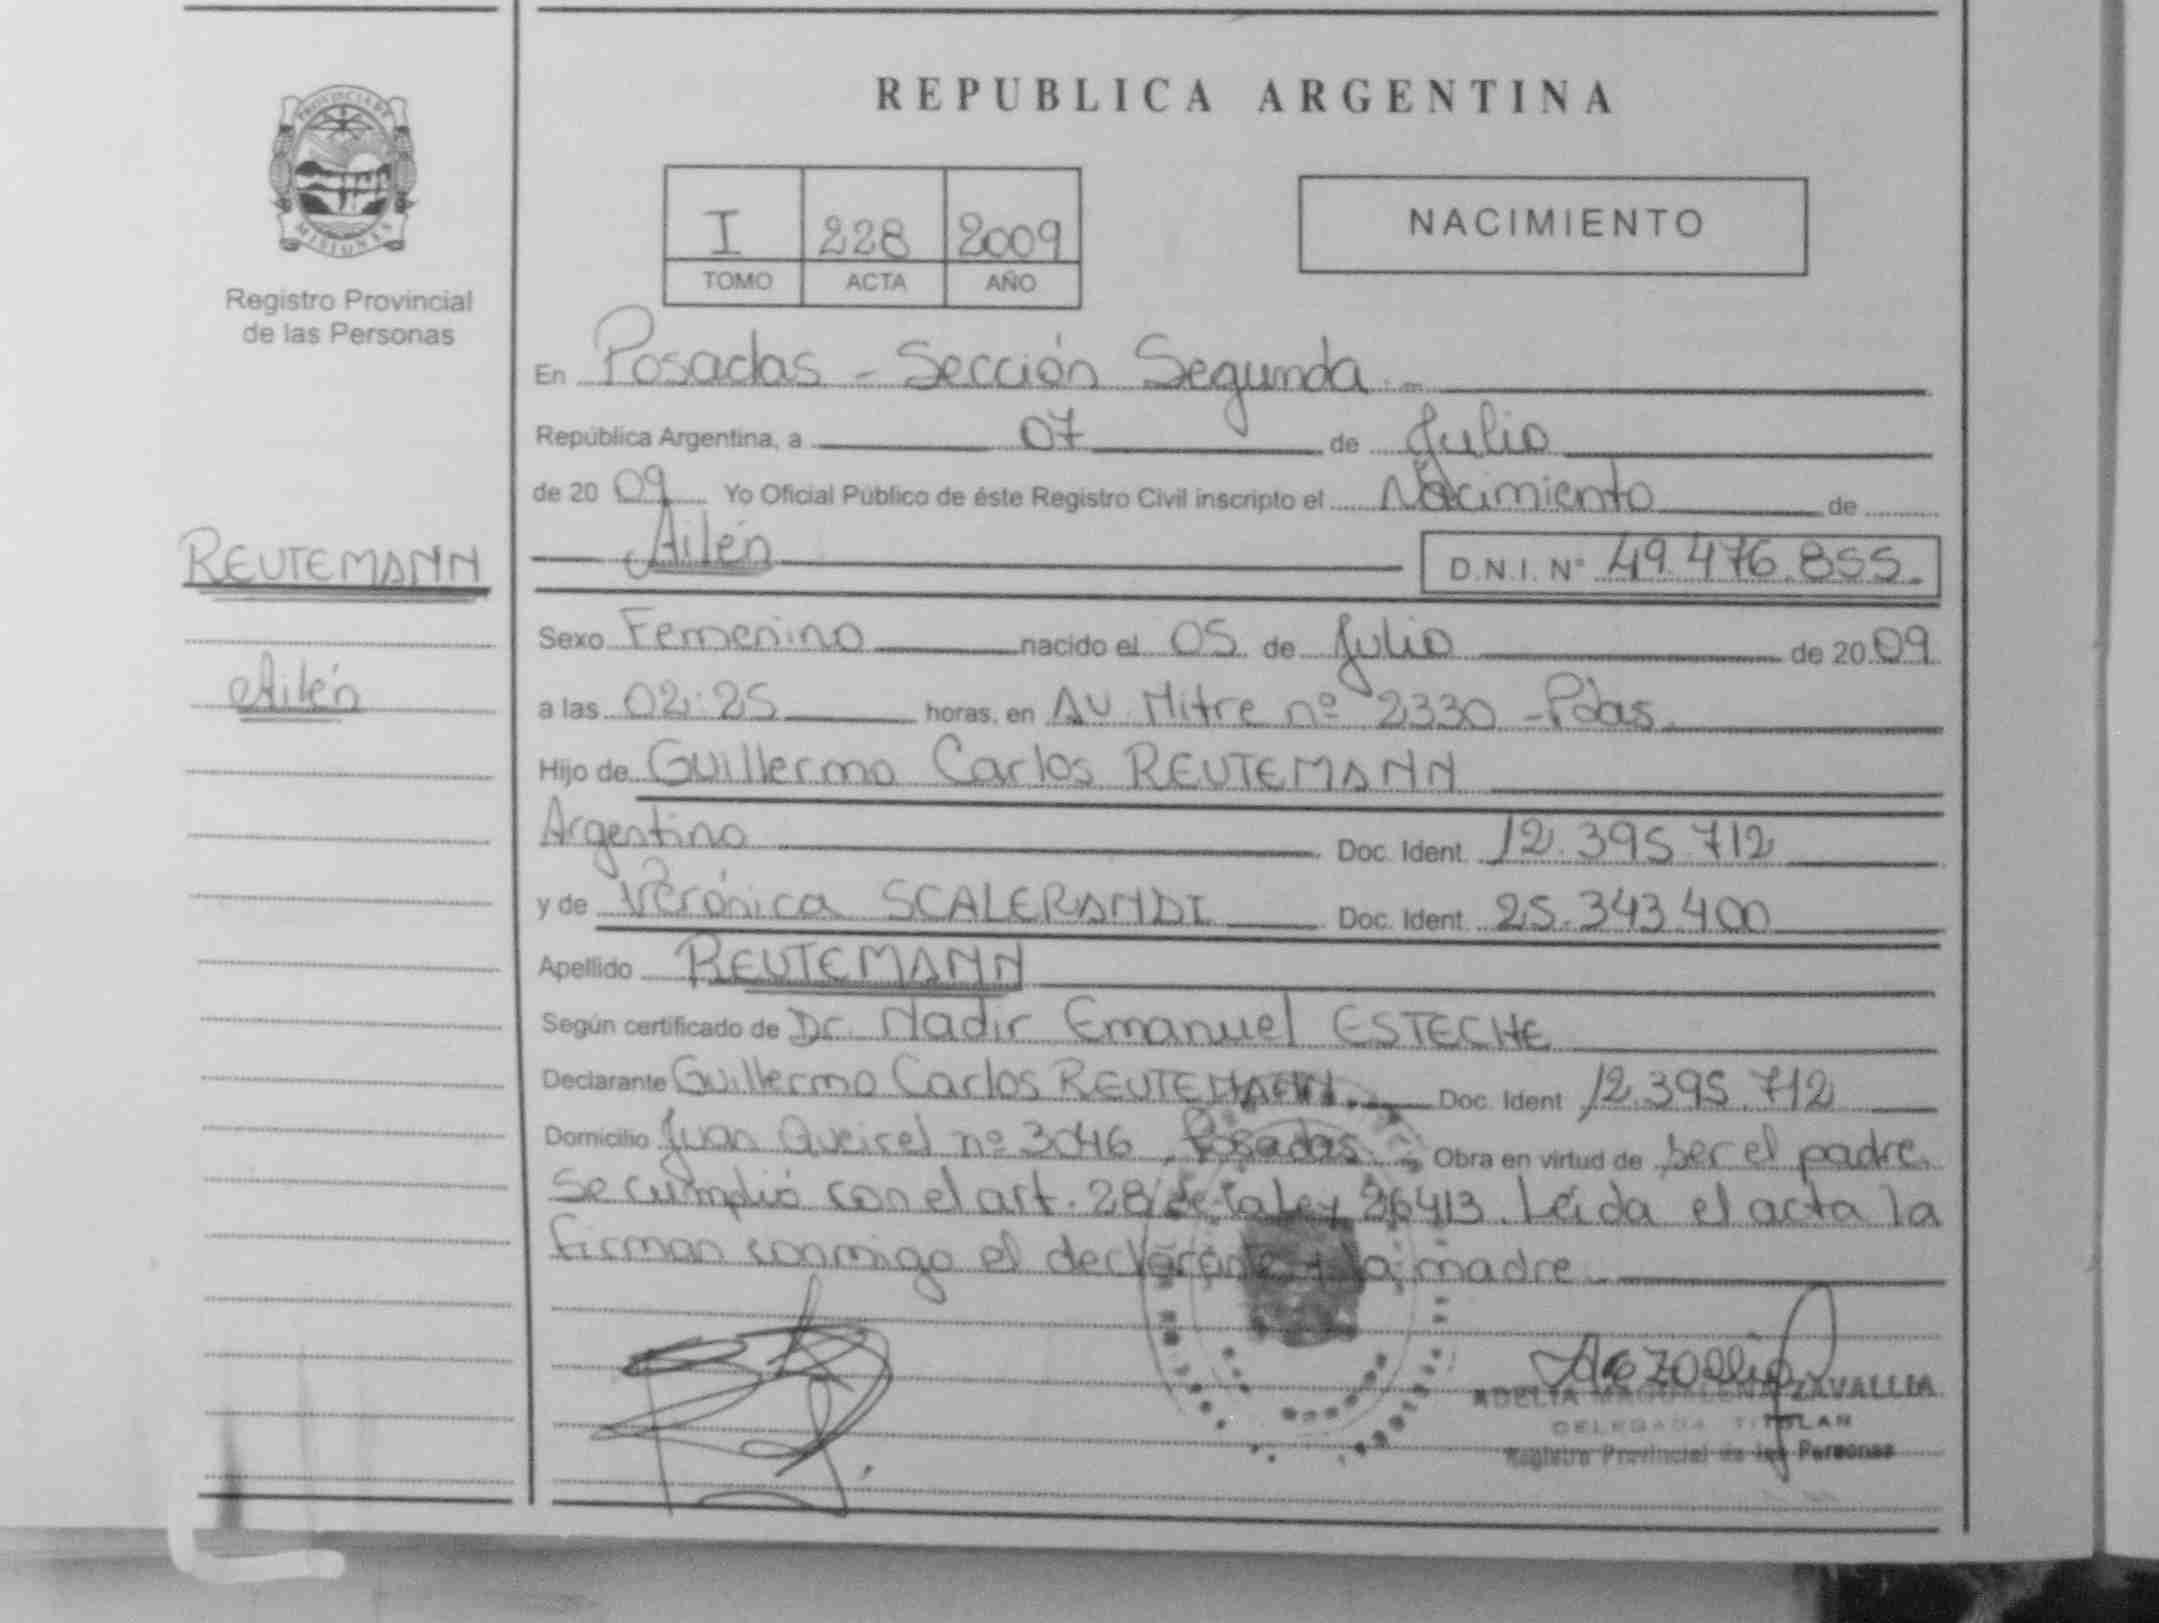 REPUBLICA ARGENTINA
PROVINCIA DE
MISIONES
Registro Provincial
de las Personas
I 228 2009
TOMO ACTA AÑO
NACIMIENTO
En Posadas - Sección Segunda.-
República Argentina, a 07 de Julio
de 2009 Yo Oficial Público de éste Registro Civil inscripto el Nacimiento de
Ailén D.N.I. Nº 49.476.855.
REUTEMANN
Ailén
Sexo Femenino nacido el 05 de Julio de 2009
a las 02:25 horas, en Av. Mitre nº 2330 - Pdas.
Hijo de Guillermo Carlos REUTEMANN
Argentino Doc. Ident. 12.395.712
y de Verónica SCALERANDI Doc. Ident. 25.343.400
Apellido REUTEMANN
Según certificado de Dr. Nadir Emanuel ESTECHE
Declarante Guillermo Carlos REUTEMANN. Doc. Ident 12.395.712
Domicilio Juan Queirel nº 3046, Posadas.- Obra en virtud de ser el padre.
Se cumplió con el art. 28 de la Ley 26413. Leída el acta la
firman conmigo el declarante y la madre.
ADELIA MAGDALENA ZAVALLIA
DELEGADA TITULAR
Registro Provincial de las Personas